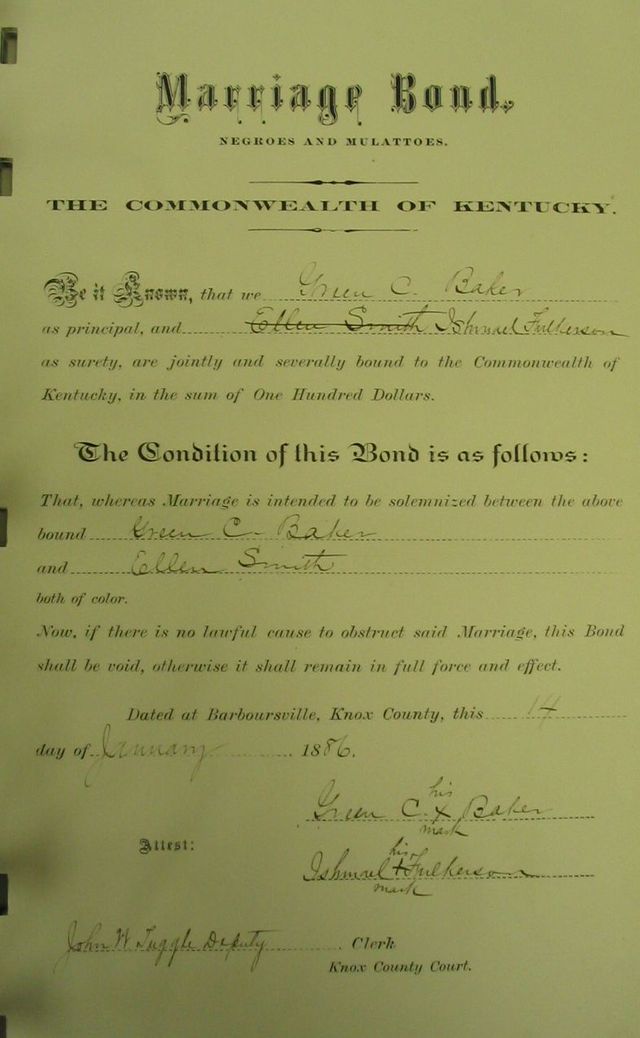 Marriage Bond.
NEGROES AND MULATTOES.
THE COMMONWEALTH OF KENTUCKY.
Be it Known, that we Green C. Baker
as principal, and Ellen Smith Ishmael Fulkerson
as surety, are jointly and severally bound to the Commonwealth of
Kentucky, in the sum of One Hundred Dollars.
The Condition of this Bond is as follows:
That, whereas Marriage is intended to be solemnized between the above
bound Green C. Baker
and Ellen Smith
both of color.
Now, if there is no lawful cause to obstruct said Marriage, this Bond
shall be void, otherwise it shall remain in full force and effect.
Dated at Barboursville, Knox County, this 14
day of January 1886.
his
Green C. X Baker
mark
Attest:
his
Ishmael + Fulkerson
mark
John W Tuggle Deputy Clerk
Knox County Court.